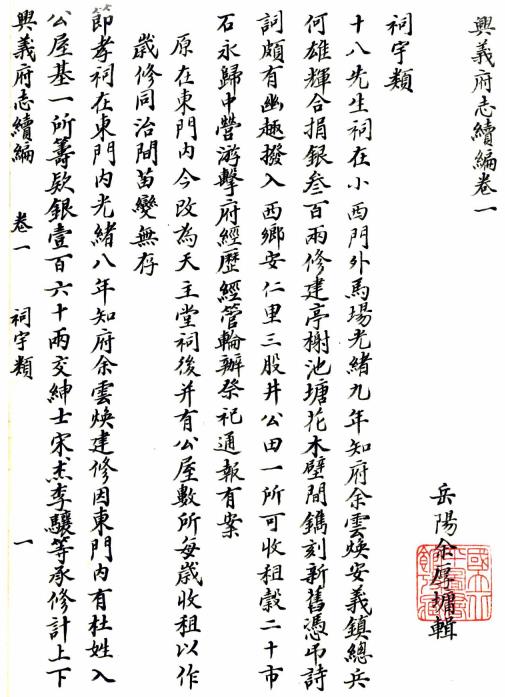 興義府志續編卷一
岳陽余厚墉輯
祠宇類
十八先生祠在小西門外馬場光緒九年知府余雲煥安義鎮總兵
何雄輝合捐銀叁百兩修建亭榭池塘花木壁間鐫刻新舊憑吊詩
詞頗有幽趣撥入西鄉安仁里三股井公田一所可收租穀二十市
石永歸中營游擊府經歷經管輪辦祭祀通報有案
原在東門內今改為天主堂祠後并有公屋數所每歲收租以作
歲修同治間苗變無存
節孝祠在東門內光緒八年知府余雲煥建修因東門內有杜姓入
公屋基一所籌欵銀壹百六十兩交紳士宋杰李驤等承修計上下
興義府志續編 卷一 祠宇類 一